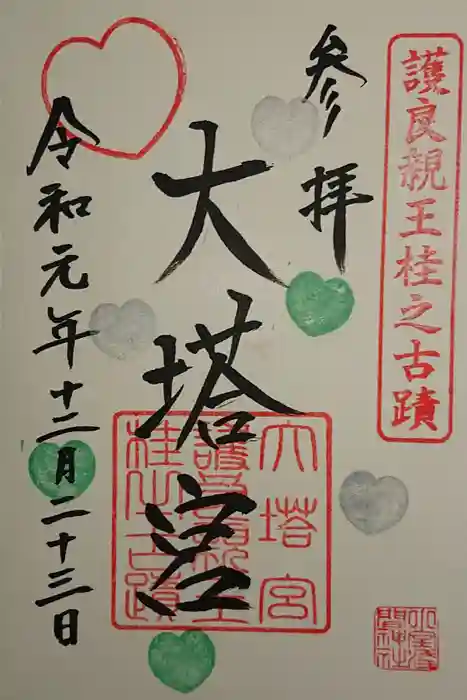 護良親王桂之古蹟
参拝
大塔宮
大塔宮
護良親王
桂之古蹟
令和元年十二月二十三日